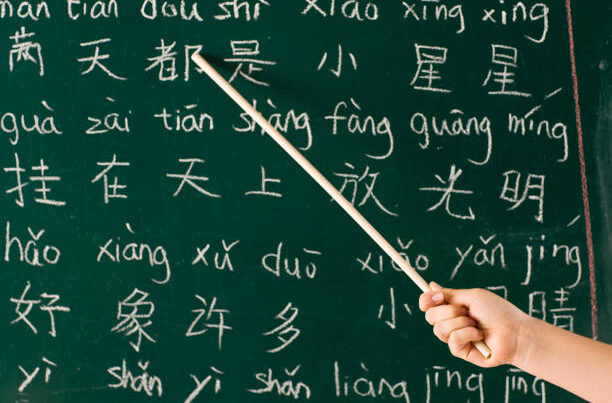 man tian dou shì xiao xīng xing
满天都是小星星
guà zài tiān shàng fàng guāng míng
挂在天上放光明
hǎo xiàng xǔ duō xiǎo yǎn jīng
好象许多小
yì shǎn yì shǎn liàng jīng jīng